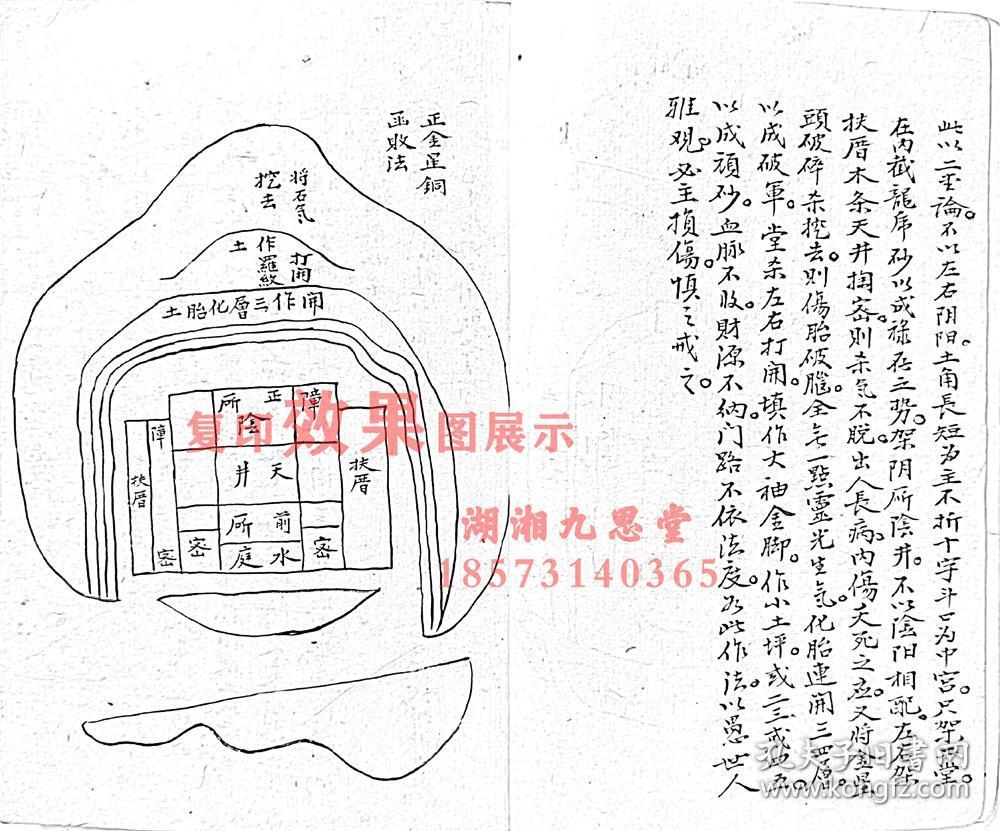 此以二宅論。不以左右阴阳。土角長短为主不折十字斗口为中宮。只架正堂。
在內截龍虎砂以成祿存之势。架阴所陰井。不以陰阳相配。左右架
扶厝木条天井掏密則杀氣不脱。出人長病。內傷夭死之应。又將金星
頭破碎杀挖去。則傷胎破腦全无一點靈光生氣。化胎連開三四層。
以成破軍。堂杀左右打開。填作大袖金脚。作小土坪。或二三或四五。
以成頑砂。血脉不收。財源不納。门路不依法度。为此作法。以愚世人
雅观。必主損傷。慎之戒之。
正金星銅
函敗法
将石氣
挖去
打開
作羅紋
土
開作三層化胎土
障正所
陰
天井
前所
水庭
障
扶厝
密
密
密
扶厝
复印效果图展示
湖湘九思堂
18573140365
孔夫子旧书网
www.kongfz.com